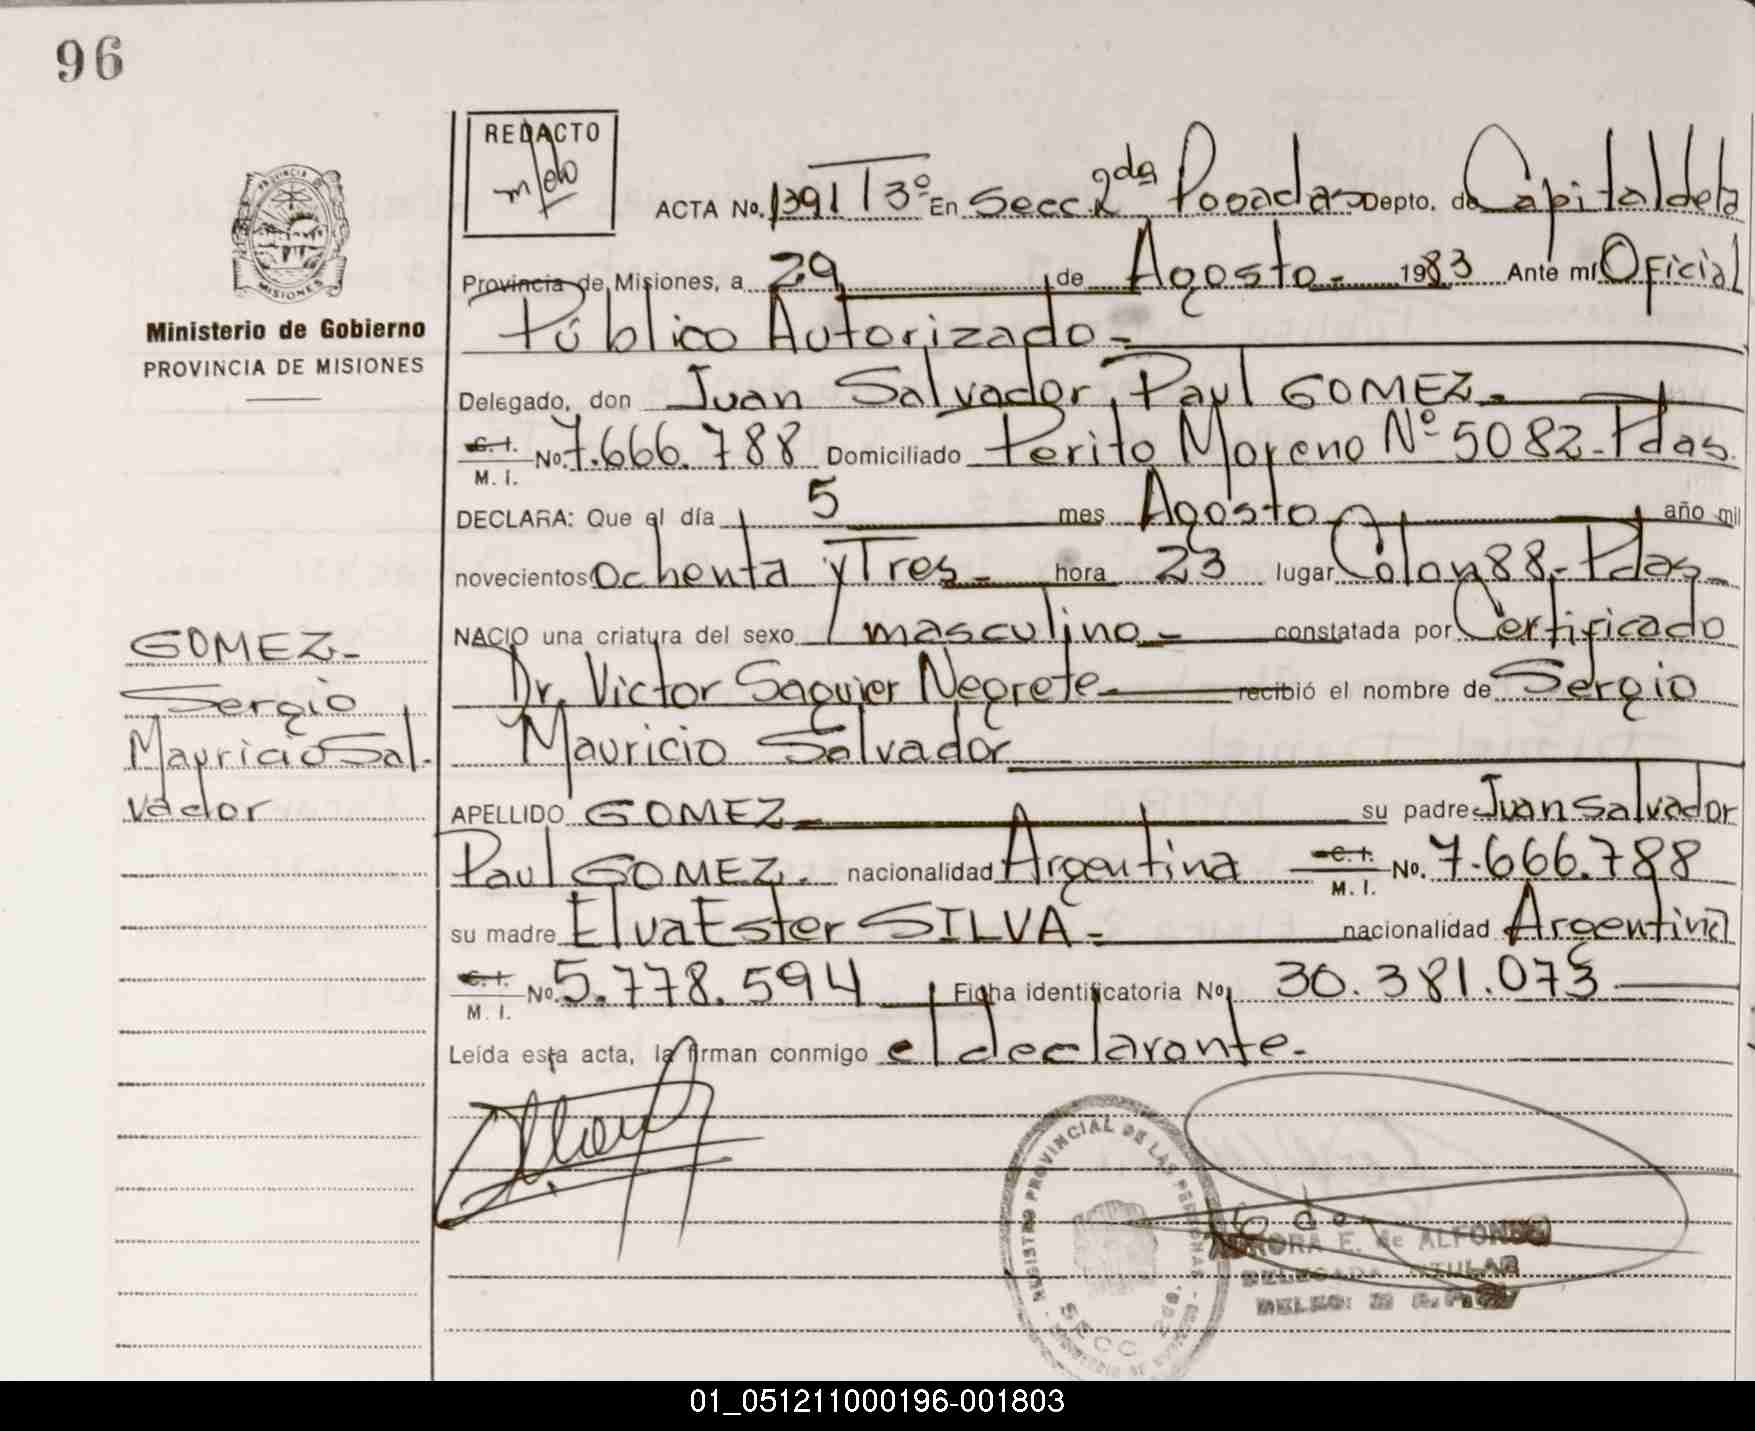 96
REDACTO
ACTA No. 1391 T 3º En Secc. 2da Posadas Depto. de Capital de la
Provincia de Misiones, a 29 de Agosto - 1983 Ante mí Oficial
Público Autorizado -
Delegado, don Juan Salvador, Paul GOMEZ -
C. I. M. I. No. 7.666.788 Domiciliado Perito Moreno Nº 5082 - Pdas.
DECLARA: Que el día 5 mes Agosto año mil
novecientos ochenta y Tres - hora 23 lugar Colon 88, - Pdas -
NACIO una criatura del sexo masculino - constatada por Certificado
Dr. Victor Saguier Negrete - recibió el nombre de Sergio
Mauricio Salvador
APELLIDO GOMEZ - su padre Juan Salvador
Paul GOMEZ. nacionalidad Argentina C. I. M. I. No. 7.666.788
su madre Elva Ester SILVA - nacionalidad Argentina
C. I. M. I. No. 5.778.594 Ficha identificatoria No. 30.381.073
Leída esta acta, la firman conmigo el declarante -
Ministerio de Gobierno
PROVINCIA DE MISIONES
GOMEZ -
Sergio
Mauricio Sal.
vador
PROVINCIA
MISIONES
REGISTRO PROVINCIAL DE LAS PERSONAS
SECC 2da.
E. de ALFONSO
DELEGADA TITULAR
01_051211000196-001803